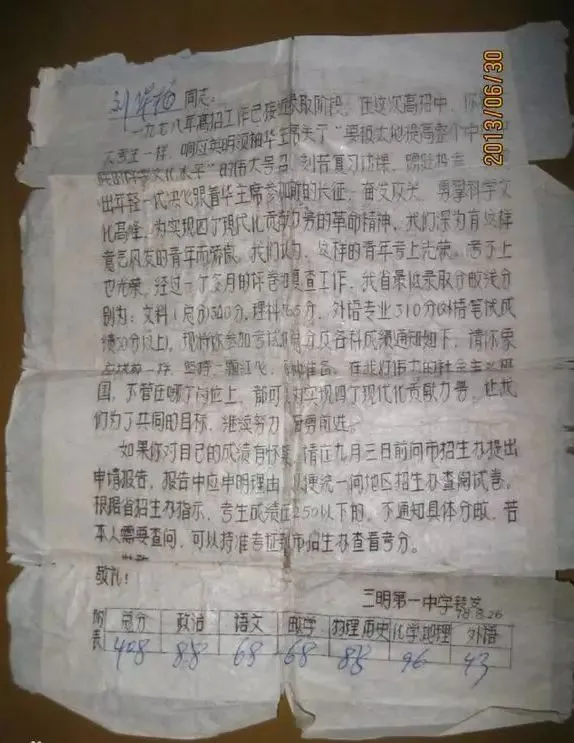 同志:
一九七八年高招工作已接近录取阶段。在这次高招中,你
大考生一样,响应英明领袖华主席关于“要极大地提高整个中
民族的科学文化水平”的伟大号召,刻苦复习功课,踊跃报考,
出年轻一代决心跟着华主席参加新的长征,奋发攻关,勇攀科学文
化高峰,为实现四个现代化贡献力量的革命精神。我们深为有这样
意气风发的青年而骄傲。我们认为,这样的青年考上光荣,考不上
也光荣。经过一个多月的评卷和复查工作,我省最低录取分数线分
别为:文科(总分)340分,理科 分,外语专业310分(外语笔试成
绩50分以上)。现将你参加考试的总分及各科成绩通知如下,请你象
考试前一样,坚持一颗红心, 准备。在我们伟大的社会主义祖
国,不管在哪个岗位上,都可为实现四个现代化贡献力量。让我
们为了共同的目标,继续努力,奋勇前进。
如果你对自己的成绩有怀疑,请在九月三日前向市招生办提出
申请报告,报告中应申明理由,以便统一向地区招生办查阅试卷。
根据省招生办指示,考生成绩在250以下的,不通知具体分数,若
本人需要查问,可以持准考证到市招生办查看考分。
敬礼!
三明第一中学
78.8.26
附表 总分 政治 语文 数学 物理 历史 化学 地理 外语
408 88 68 68 88 96 43
2013/06/30